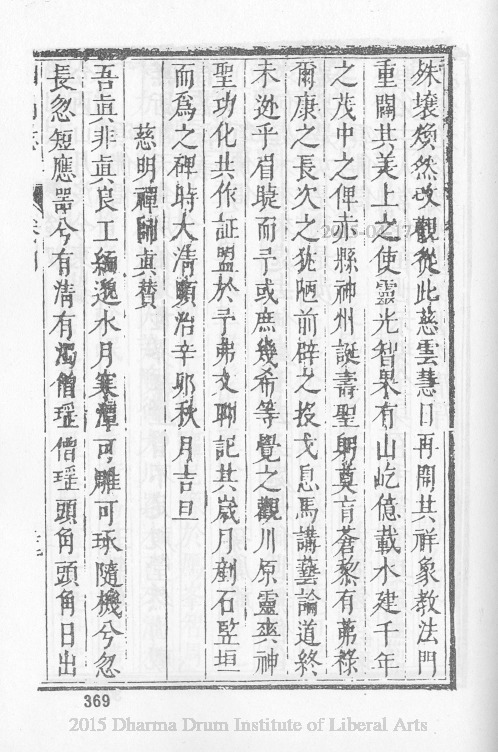 殊壤煥然改觀從此慈雲慧日再開其祥象教法門
重闢其美上之使靈光智果有山屹億載水建千年
之茂中之俾赤縣神州誕壽聖明奠育蒼黎有茀祿
爾康之長次之狉陋前辟之投戈息馬講藝論道終
未逊乎眉睫而予或庶幾希等覺之觀川原靈爽神
聖功化共作証盟於予弗文聊記其歲月剞石監垣
而為之碑時大清順治辛卯秋月吉旦
慈明禪師真賛
吾真非真良工緬邈水月寒潭可雕可琢隨機兮忽
長忽短應器兮有清有濁僧瑶僧瑶頭角頭角日出
369
2015 Dharma Drum Institute of Liberal Arts